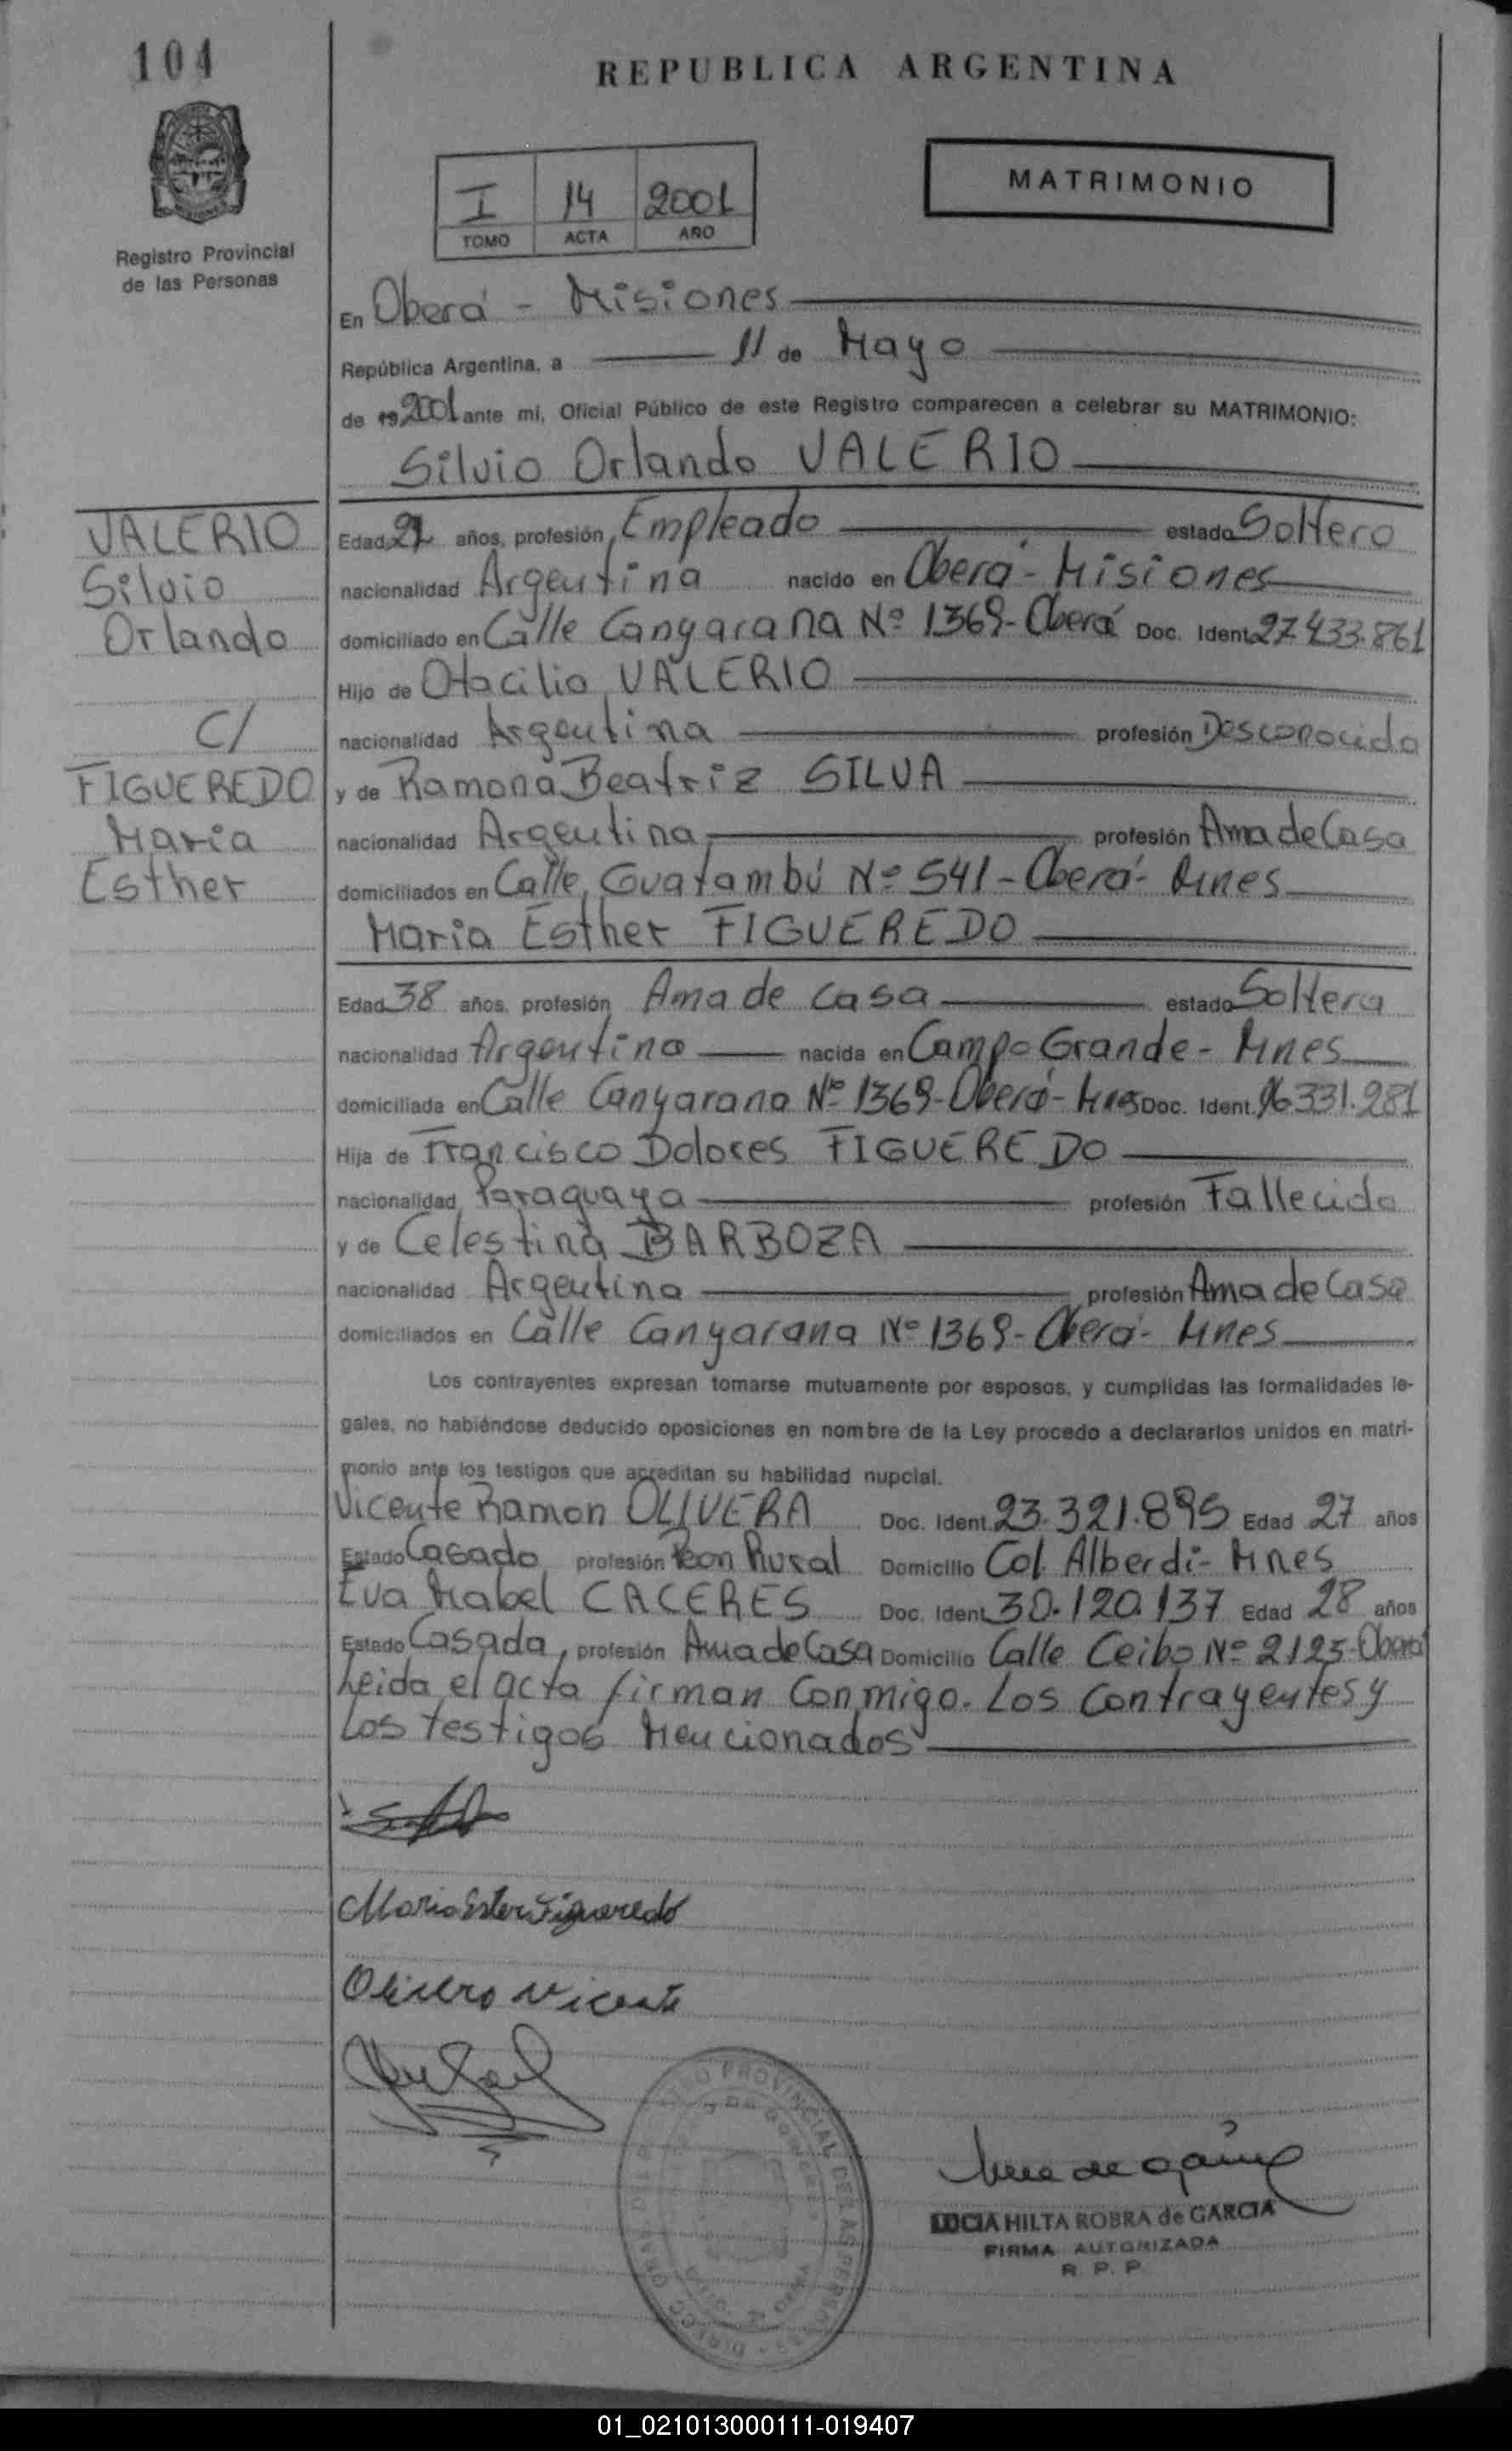 104
REPUBLICA ARGENTINA
I 14 2001
TOMO ACTA AÑO
MATRIMONIO
Registro Provincial
de las Personas
En Oberá - Misiones
República Argentina, a 11 de Mayo
de 19 2001 ante mí, Oficial Público de este Registro comparecen a celebrar su MATRIMONIO:
Silvio Orlando VALERIO
VALERIO
Silvio
Orlando
C/
FIGUEREDO
Maria
Esther
Edad años, profesión Empleado estado Soltero
nacionalidad Argentina nacido en Oberá - Misiones
domiciliado en Calle Canyarana Nº 1369 - Oberá Doc. Ident. 27.433.861
Hijo de Otacilio VALERIO
nacionalidad Argentina profesión Desconocida
y de Ramona Beatriz SILVA
nacionalidad Argentina profesión Ama de Casa
domiciliados en Calle Guatambú Nº 541 - Oberá - Mnes
Maria Esther FIGUEREDO
Edad 38 años, profesión Ama de Casa estado Soltera
nacionalidad Argentina nacida en Campo Grande - Mnes
domiciliada en Calle Canyarana Nº 1369 - Oberá - Mnes Doc. Ident. 16.331.281
Hija de Francisco Dolores FIGUEREDO
nacionalidad Paraguaya profesión Fallecido
y de Celestina BARBOZA
nacionalidad Argentina profesión Ama de Casa
domiciliados en Calle Canyarana Nº 1369 - Oberá - Mnes
Los contrayentes expresan tomarse mutuamente por esposos, y cumplidas las formalidades le-
gales, no habiéndose deducido oposiciones en nombre de la Ley procedo a declararlos unidos en matri-
monio ante los testigos que acreditan su habilidad nupcial.
Vicente Ramon OLIVERA Doc. Ident. 23.321.895 Edad 27 años
Estado Casado profesión Peon Rural Domicilio Col. Alberdi - Mnes
Eva Mabel CACERES Doc. Ident. 30.120.137 Edad 28 años
Estado Casada, profesión Ama de Casa Domicilio Calle Ceibo Nº 2125 - Oberá
Leida el acta firman Conmigo. Los Contrayentes y
Los testigos Mencionados
Maria Ester Figueredo
Olivero Vicente
PROVINCIAL DE LAS PERSONAS
LUCIA HILTA ROBRA de GARCIA
FIRMA AUTORIZADA
R. P. P.
01_021013000111-019407